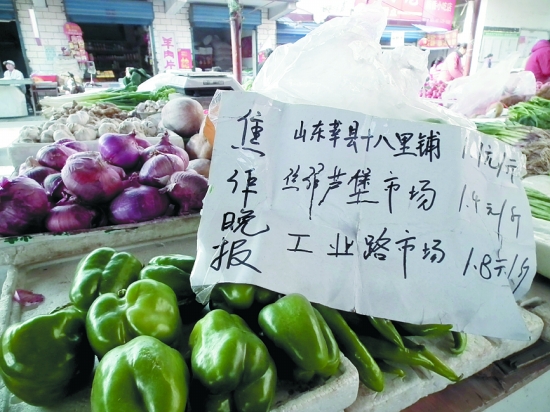 焦作晚报
山东莘县十八里铺 1.1元/斤
葫芦堡市场 1.4元/斤
工业路市场 1.8元/斤
羊肉片